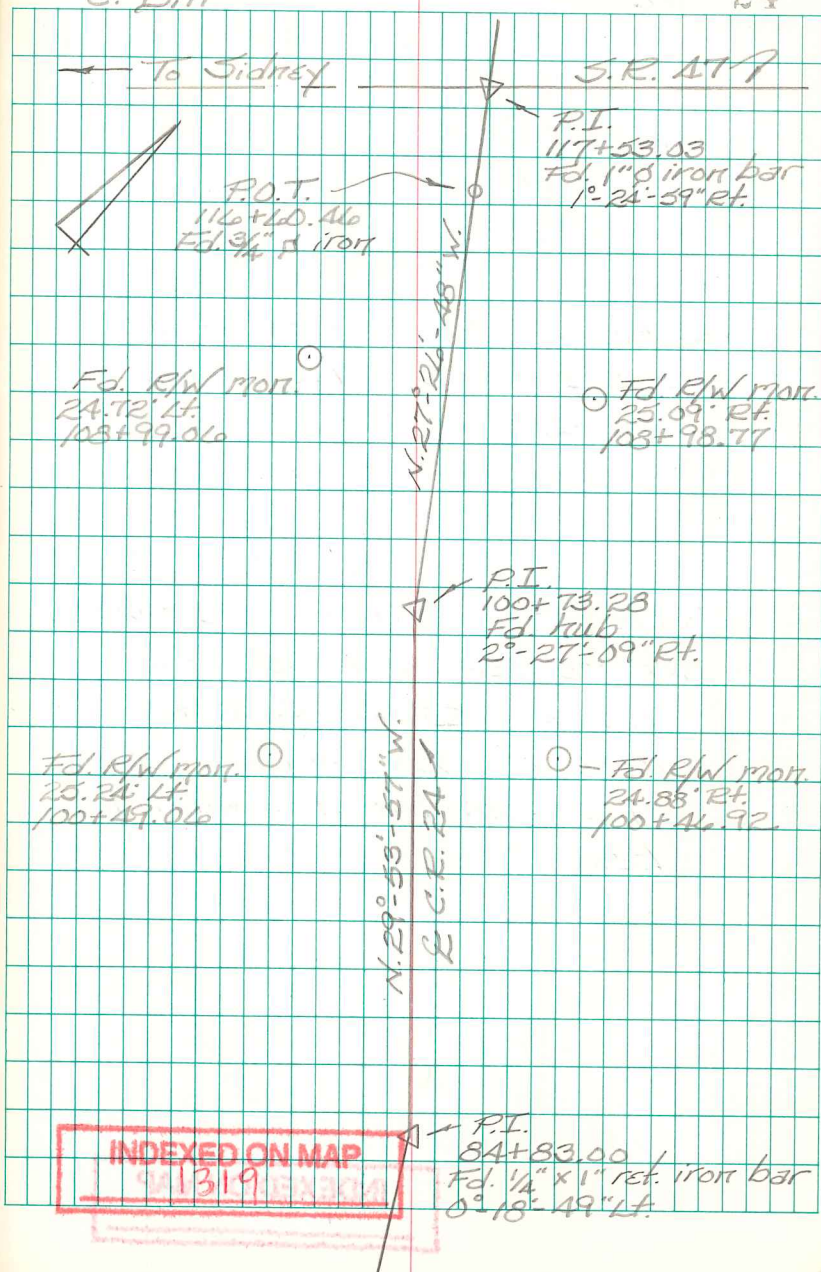 To Sidney
S.R. 47
P.I.
117+53.03
Fd. 1"ø iron bar
1°-24'-59" Rt.
P.O.T.
116+60.46
Fd. 3/4" ø iron
N.27°-26'-48"W.
Fd. R/W mon.
24.72' Lt.
108+99.06
Fd. R/W mon.
25.09' Rt.
108+98.77
P.I.
100+73.28
Fd. hub
2°-27'-09" Rt.
N.29°-53'-57"W.
℄ C.R. 24
Fd. R/W mon.
25.24' Lt.
100+49.06
Fd. R/W mon.
24.88' Rt.
100+46.92
P.I.
84+83.00
Fd. 1/4" x 1" rct. iron bar
0°-18'-49" Lt.
INDEXED ON MAP
1319